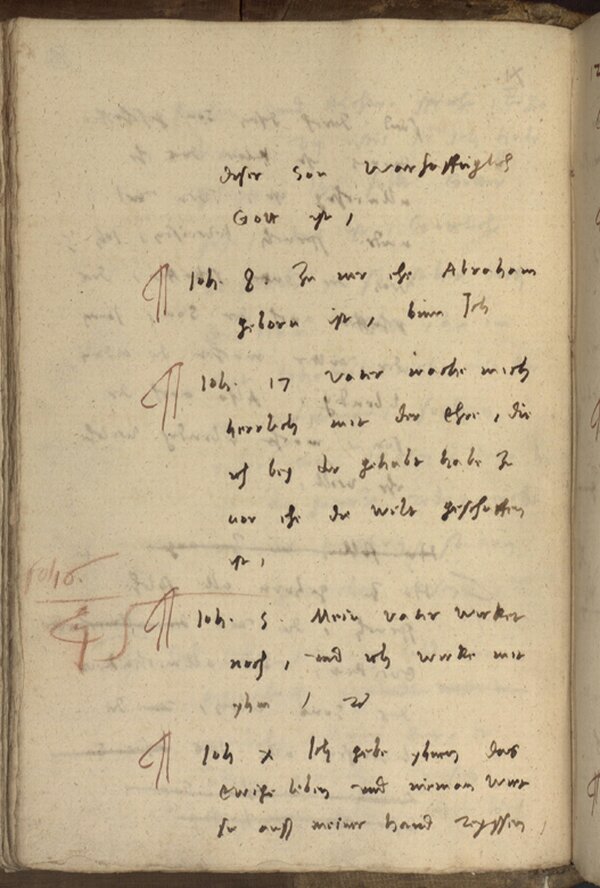 dieser son warhafftiglich
Gott ist ,
¶ Joh. 8. Zu vor ehe Abraham
geborn ist, binn Ich
¶ Joh. 17 Vater mache mich
herrlich mit der Ehre, die
ich bey dir gehabt habe zu
vor ehe die welt geschaffen
ist ,
Joh 5.
¶ Joh. 5. Mein vater wirket
noch, und ich wirke mit
yhm ,
¶ Joh X Ich gebe yhnen das
Ewige leben und nieman wirt
sie auß meiner hand reyssen,